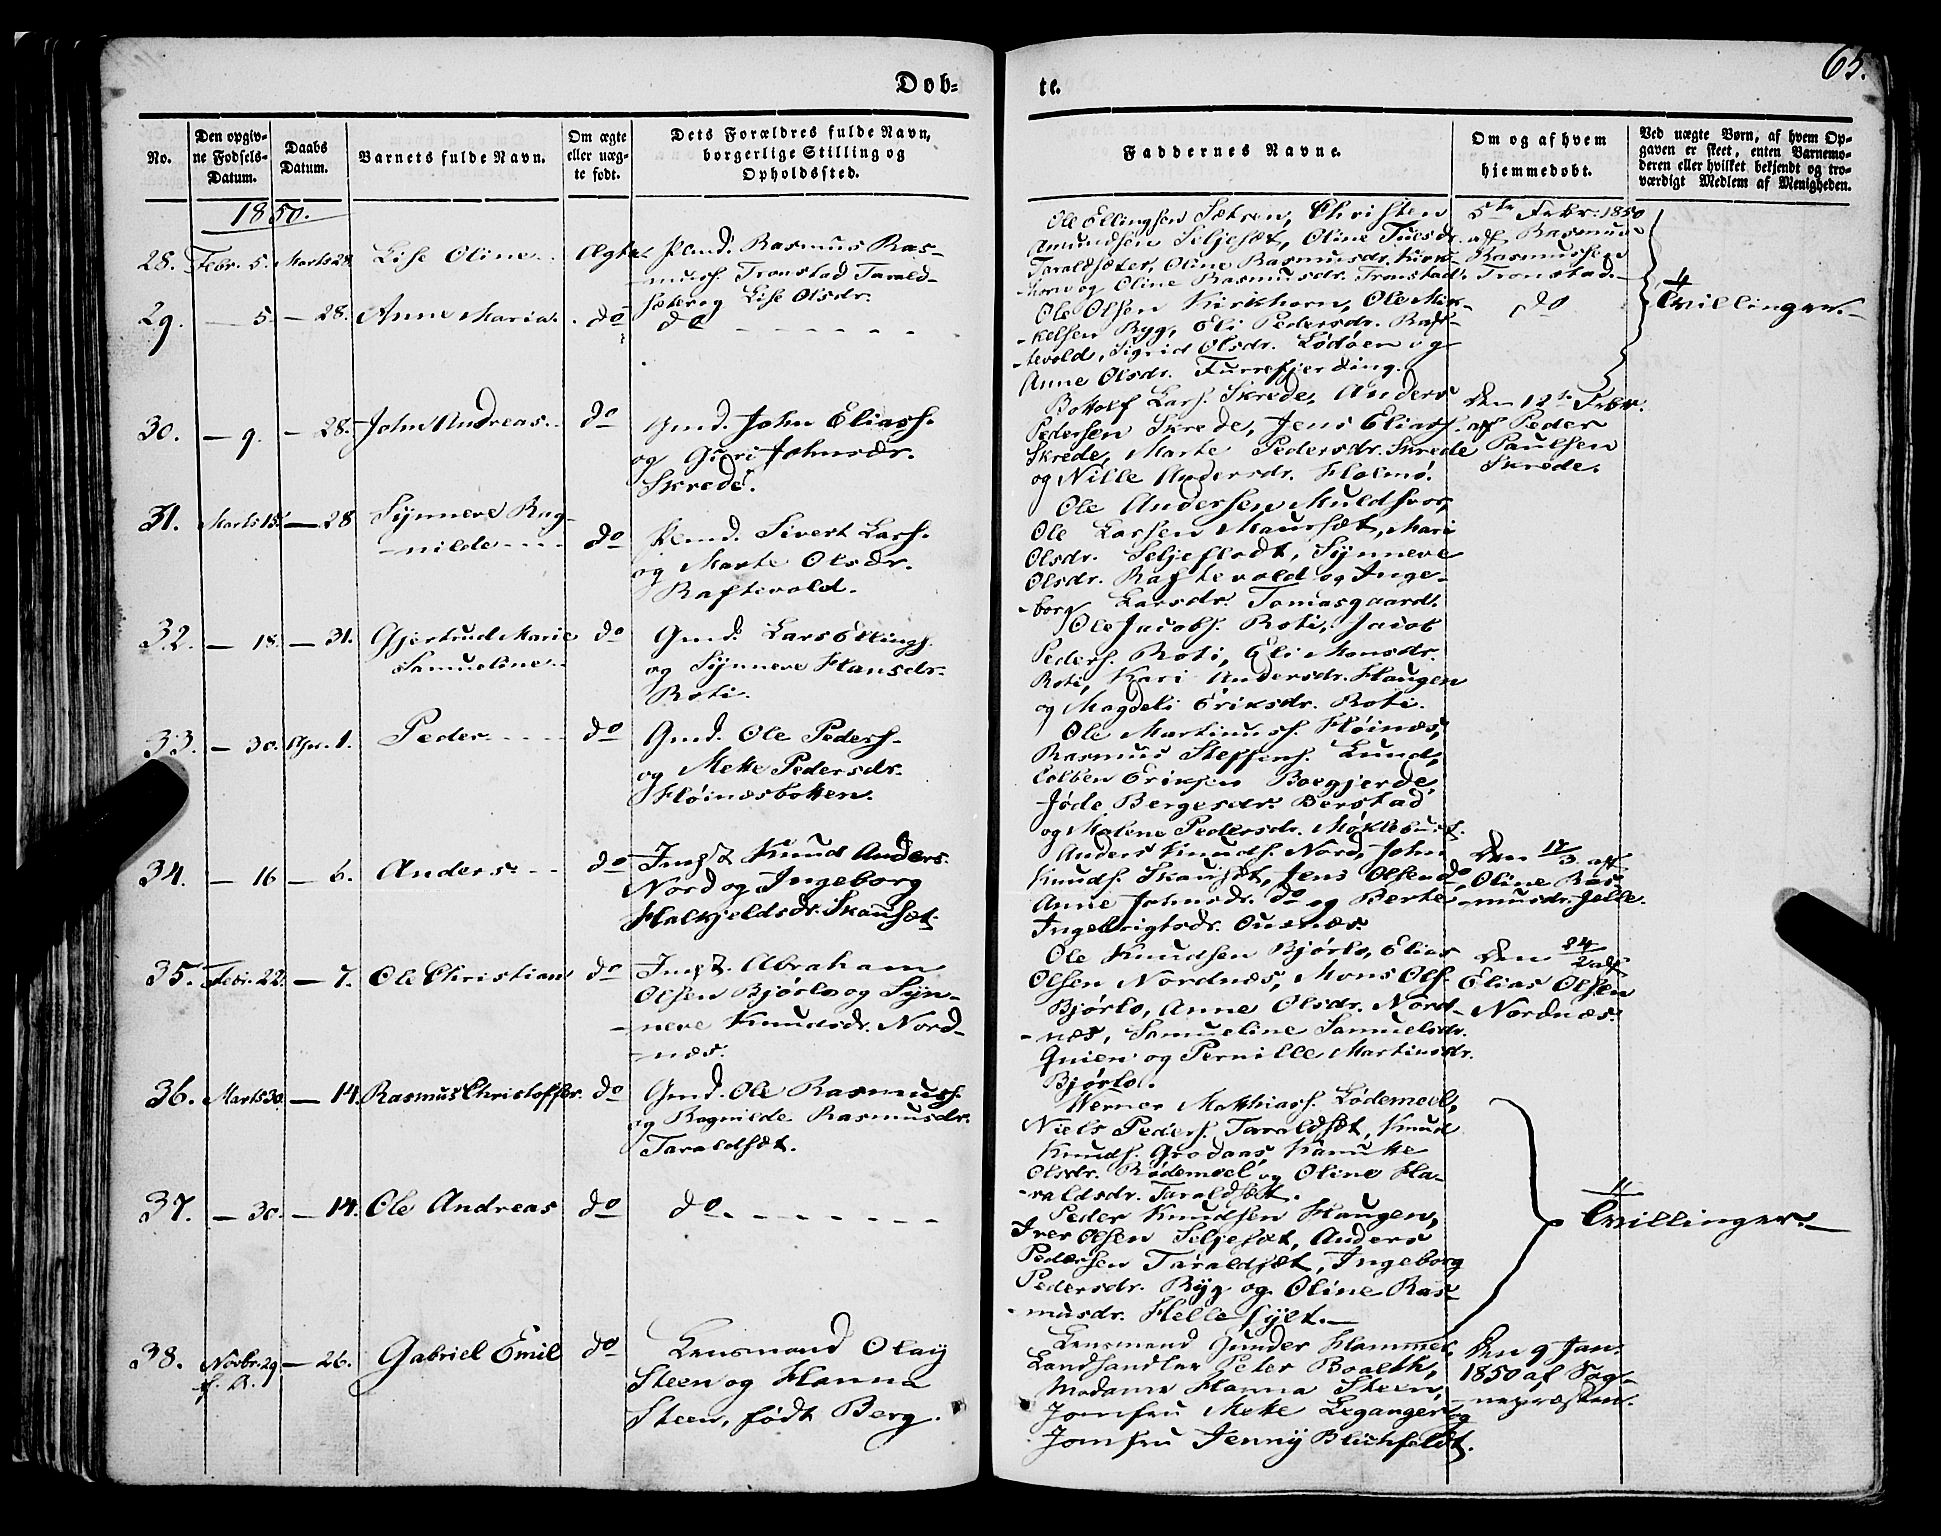 65.
Dob-
te.
No.
Den opgiv-
ne Fødsels-
Datum.
Daabs
Datum.
Barnets fulde Navn.
Om ægte
eller uæg-
te født.
Dets Forældres fulde Navn,
borgerlige Stilling og
Opholdssted.
Faddernes Navne.
Om og af hvem
hjemmedøbt.
Ved uægte Børn, af hvem Op-
gaven er skeet, enten Barnemo-
deren eller hvilket bekjendt og tro-
værdigt Medlem af Menigheden.
1850.
28. Febr. 5. Marts 28. Lise Oline. Ægte.
Pmd. Rasmus Ras-
muss. Tronstad Tarald-
sæter og Lise Olsdr.
Ole Ellingsen Sætren, Christen
Amundsen Seljesæt, Oline Tuesdr.
Taraldsæter, Oline Rasmusdr. Kirk-
horn og Oline Rasmusdr. Tronstad.
5te Febr. 1850
af Rasmus
Rasmussen
Tronstad.
Tvillinger.
29. — 5. — 28. Anne Maria. do do
Ole Olsen Kirkhorn, Ole Mik-
kelsen Byg, Eli Pedersdr. Raf-
tevold, Sigrid Olsdr. Lødøen og
Anne Olsdr. Furrefjerding.
do
30. — 9. — 28. John Andreas. do
Gmd. John Eliass.
og Guri Johnsdr.
Skrede.
Bottolf Lars. Skrede, Anders
Pedersen Skrede, Jens Eliass.
Skrede, Marte Pedersdr. Skrede
og Nille Andersdr. Holmø.
Den 12te Febr.
af Peder
Paulsen
Skrede.
31. Marts 15. — 28 Synneve Rag-
nilde do
Pmd. Sivert Lars.
og Marte Olsdr.
Raftevold.
Ole Andersen Muldsvor,
Ole Larsen Maursæt, Mari
Olsdr. Seljeflodt, Synneve
Olsdr. Raftevold og Inge-
borg Larsdr. Tomasgaard.
32. — 18. — 31. Gjertrud Marie
Samueline do
Gmd. Lars Ellings.
og Synneve Hansdr.
Roti.
Ole Jacobs. Roti, Jacob
Peders. Roti, Eli Monsdr.
Roti, Kari Andersdr. Haugen
og Magdeli Eriksdr. Roti.
33. — 30. Apr. 1. Peder do
Gmd. Ole Peders.
og Mette Pedersdr.
Høinesbotten.
Ole Martinuss. Høinæs,
Rasmus Steffens. Lund,
Colben Eriksen Boegjerde,
Jøde Bergesdr. Berstad
og Malene Pedersdr. Møklebust.
34. — 16 — 6. Anders do
Ingst Knud Anders.
Nord og Ingeborg
Halkjeldsdr. Skausæt.
Anders Knuds. Nord, John
Knuds. Skausæt, Jens Olsen do,
Anne Johnsdr. do og Berte
Ingebrigtsdr. Ousnæs.
Den 17/3 af
Oline Ras-
musdr. Jelle.
35. Febr. 22. — 7. Ole Christian do
Ingst. Abraham
Olsen Bjørlo og Syn-
neve Knudsdr. Nord-
næs.
Ole Knudsen Bjørlo, Elias
Olsen Nordnæs, Mons Ols.
Bjørlo, Anne Olsdr. Nord-
næs, Samueline Samuelsdr.
og Pernille Martinsdr.
Bjørlo.
Den 24/2 af
Elias Olsen
Nordnæs.
36. Marts 30. — 14. Rasmus Christoffer. do
Gmd. Ole Rasmuss.
og Ragnilde Rasmusdr.
Taraldsæt.
Werner Matthiass. Lødemoel,
Niels Peders. Taraldsæt, Knud
Knuds. Grodaas, Kanutte
Olsdr. Rødemoel og Oline Ha-
raldsdr. Taraldsæt.
Tvillinger.
37. — 30. — 14. Ole Andreas do do
Peder Knudsen Haugen,
Iver Olsen Seljesæt, Anders
Pedersen Taraldsæt, Ingeborg
Pedersdr. Byg og Oline Ras-
musdr. Hellesylt.
38. Novbr. 29 — 26. Gabriel Emil do
f. A.
Lensmand Olay
Steen og Hanna
Steen, født Berg.
Lensmand Gunder Hammer,
Landhandler Peter Boalth,
Madame Hanna Steen,
Jomfru Mette Leganger og
Jomfru Jenny Blichfeldt.
Den 9 Jan.
1850 af Sog-
nepræsten.